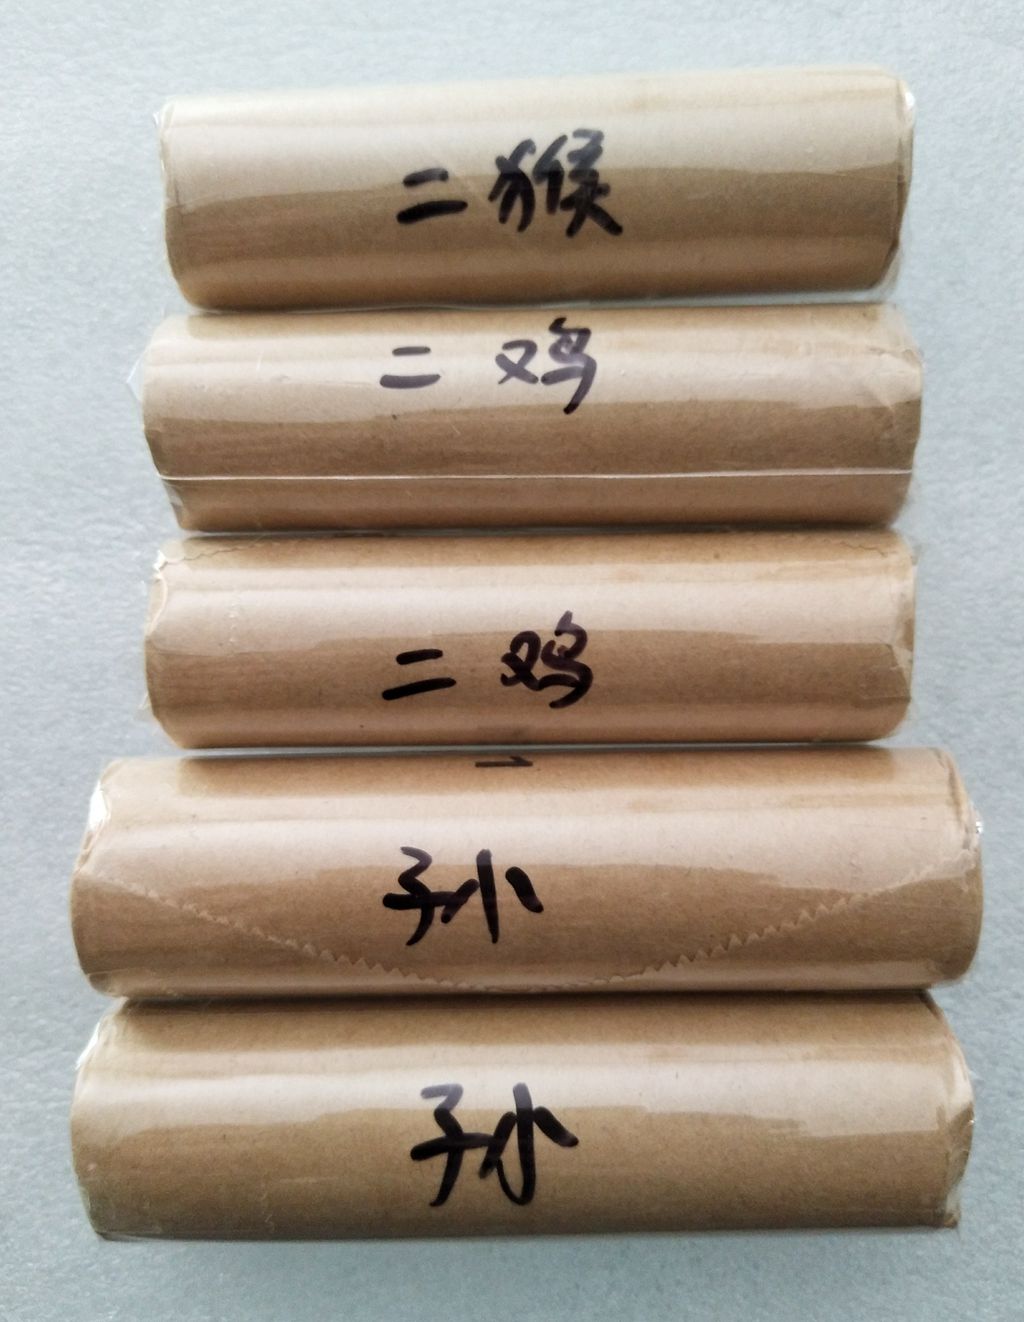 二猴
二鸡
二鸡
1
孙
孙